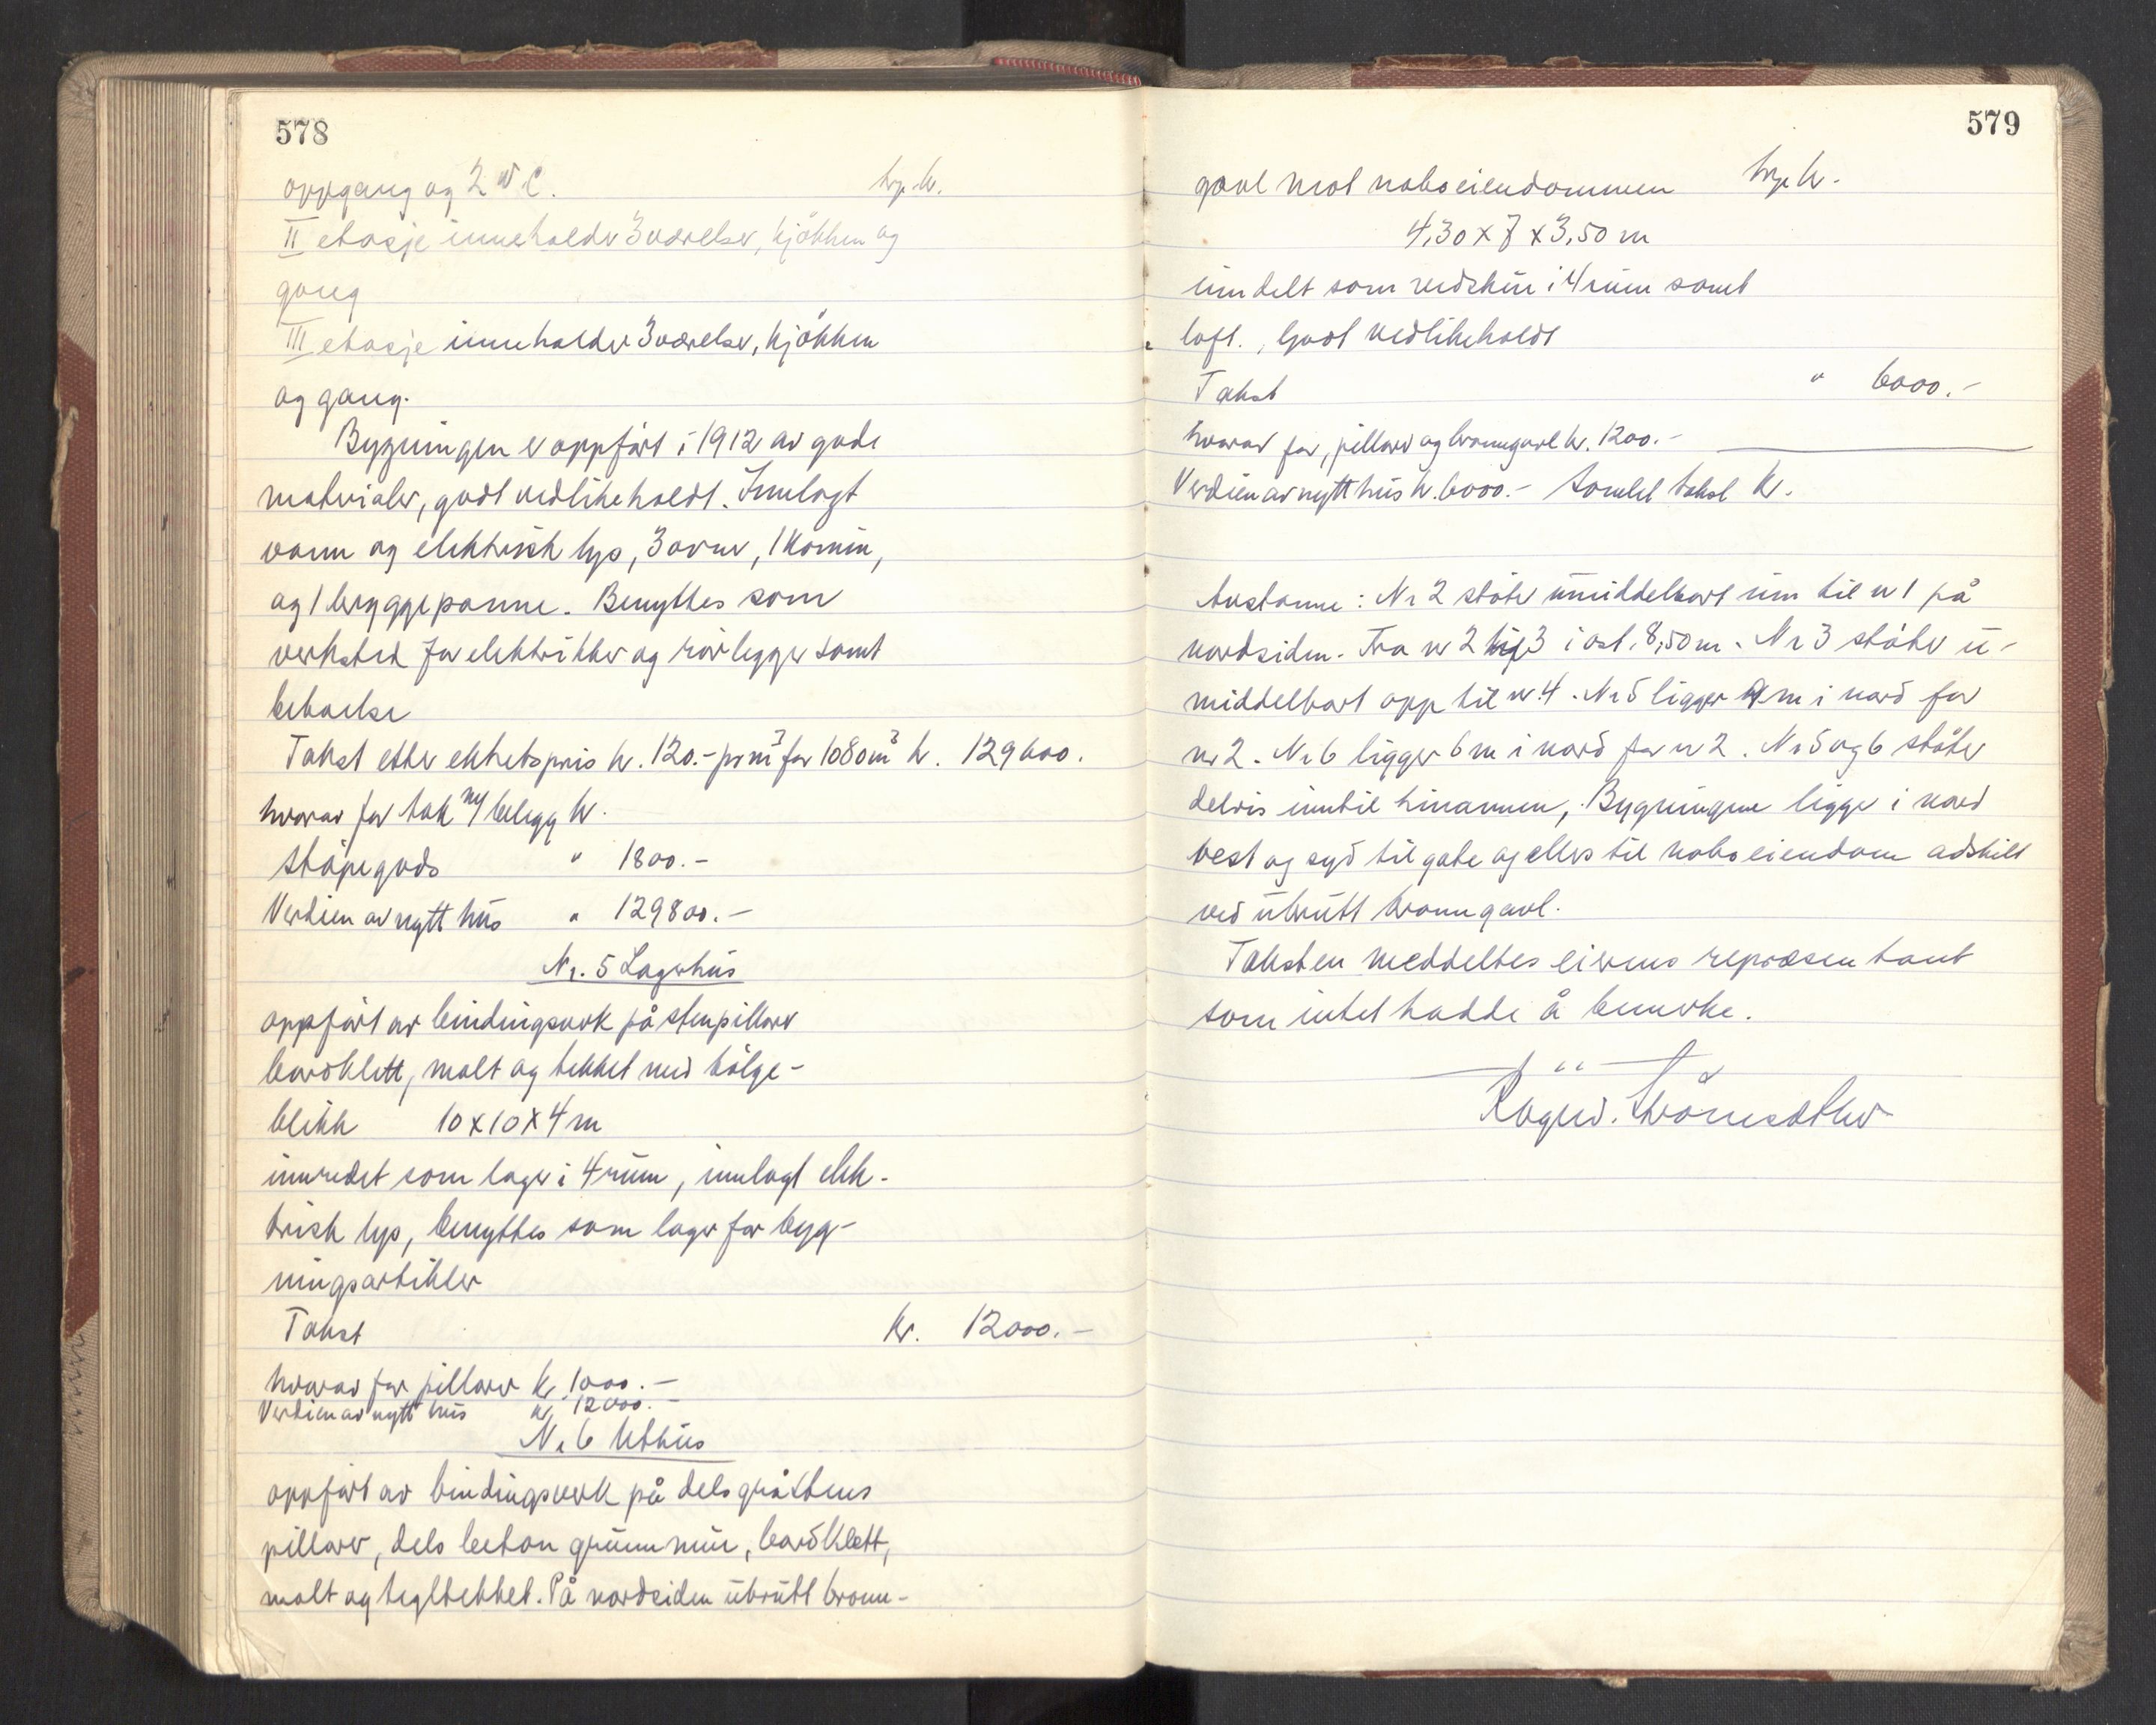 578
oppgang og 2 W.C. trp. kr.
II etasje inneholder 3 værelser, kjökken og
gang
III etasje inneholder 3 værelser, kjökken
og gang.
Bygningen er oppfört i 1912 av gode
materialer, godt vedlikeholdt. Innlagt
vann og elektrisk lys, 3 ovner, 1 komin,
og 1 bryggepanne. Benyttes som
verksted for elektriker og rörlegger samt
beboelse
Takst etter enhetspris kr. 120.- pr m³ for 1080 m³ kr. 129600.
hvorav for tak m/ belegg kr.
stöpegods " 1800.-
Verdien av nytt hus " 129800.-
Nr. 5 Lagerhus
oppfört av bindingsverk på stenpillarer
bordklett, malt og tekket med bölge-
blikk 10 x 10 x 4 m
innredet som lager i 4 rum, innlagt elek-
trisk lys, benyttes som lager for byg-
ningsartikler
Takst Kr. 12000.-
hvorav for pillarer kr. 1000.-
Verdien av nytt hus kr. 12000.-
Nr 6 Uthus
oppfört av bindingsverk på dels gråstens
pillarer, dels betong grunnmur, bordklett,
malt og tegltekket. På nordsiden ubrutt brann-
579
gavl mot naboeiendommen trp. kr.
4,30 x 7 x 3,50 m
inndelt som vedskur i 4 rum samt
loft., Godt vedlikeholdt
Takst " 6000.-
hvorav for, pillarer og branngavl kr. 1200.-
Verdien av nytt hus kr. 6000.- Samlet takst Kr.
Avstanne: Nr 2 stöter umiddelbart inn til nr 1 på
nordsiden. Fra nr 2 til 3 i öst, 8,50 m. Nr 3 stöter u-
middelbart opp til nr. 4. Nr 5 ligger 4 m i nord for
nr 2. Nr 6 ligger 6 m i nord for nr 2. Nr 5 og 6 stöter
delvis inntil hinannen, Bygningene ligger i nord
vest og syd til gate og ellers til naboeiendom adskilt
ved ubrutt branngavl.
Taksten meddeltes eierens representant
som intet hadde å bemerke.
Ragnv.